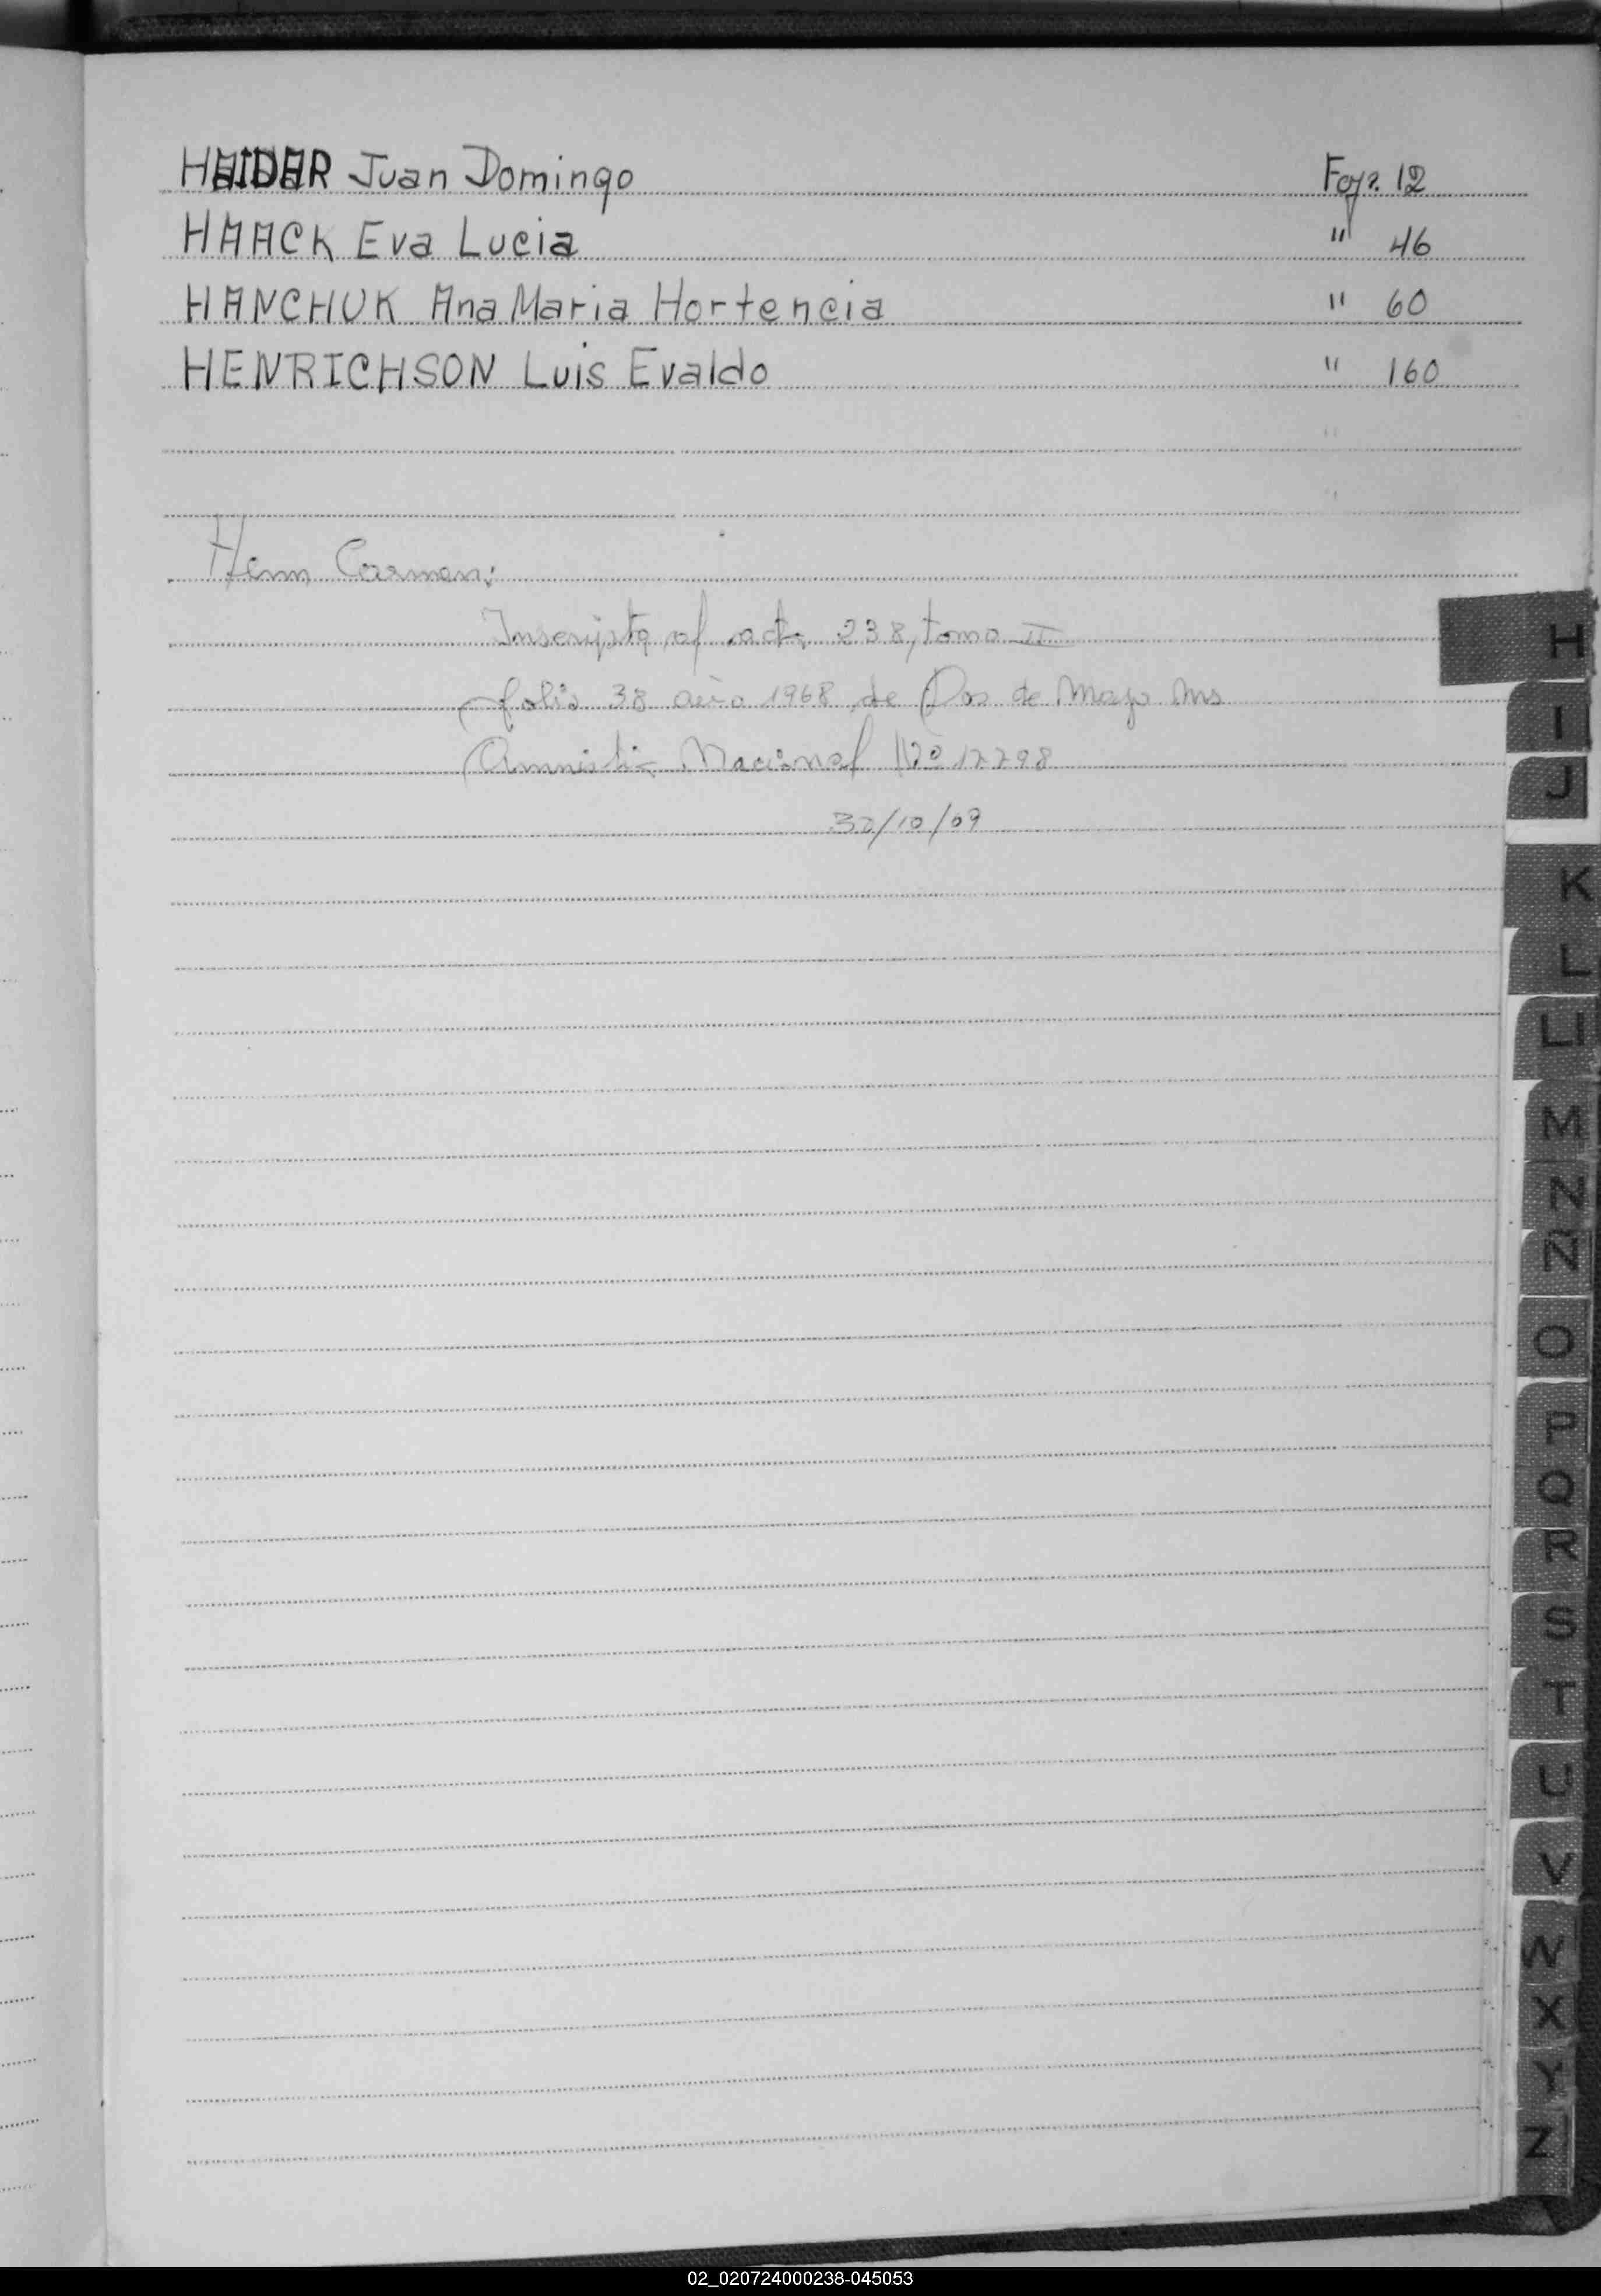 HAIDAR Juan Domingo Fojs. 12
HAACK Eva Lucia " 46
HANCHUK Ana Maria Hortencia " 60
HENRICHSON Luis Evaldo " 160
Henn Carmen:
Inscripta al acta 238, tomo II
folio 38 año 1968 de Dos de Mayo Mns
Amnistia Nacional Nº 17798
30/10/09
H
I
J
K
L
Ll
M
N
Ñ
O
P
Q
R
S
T
U
V
W
X
Y
Z
02_020724000238-045053